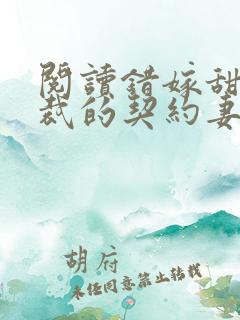 閱讀錯嫁甜
裁的契約妻
胡府
未经同意禁止转载